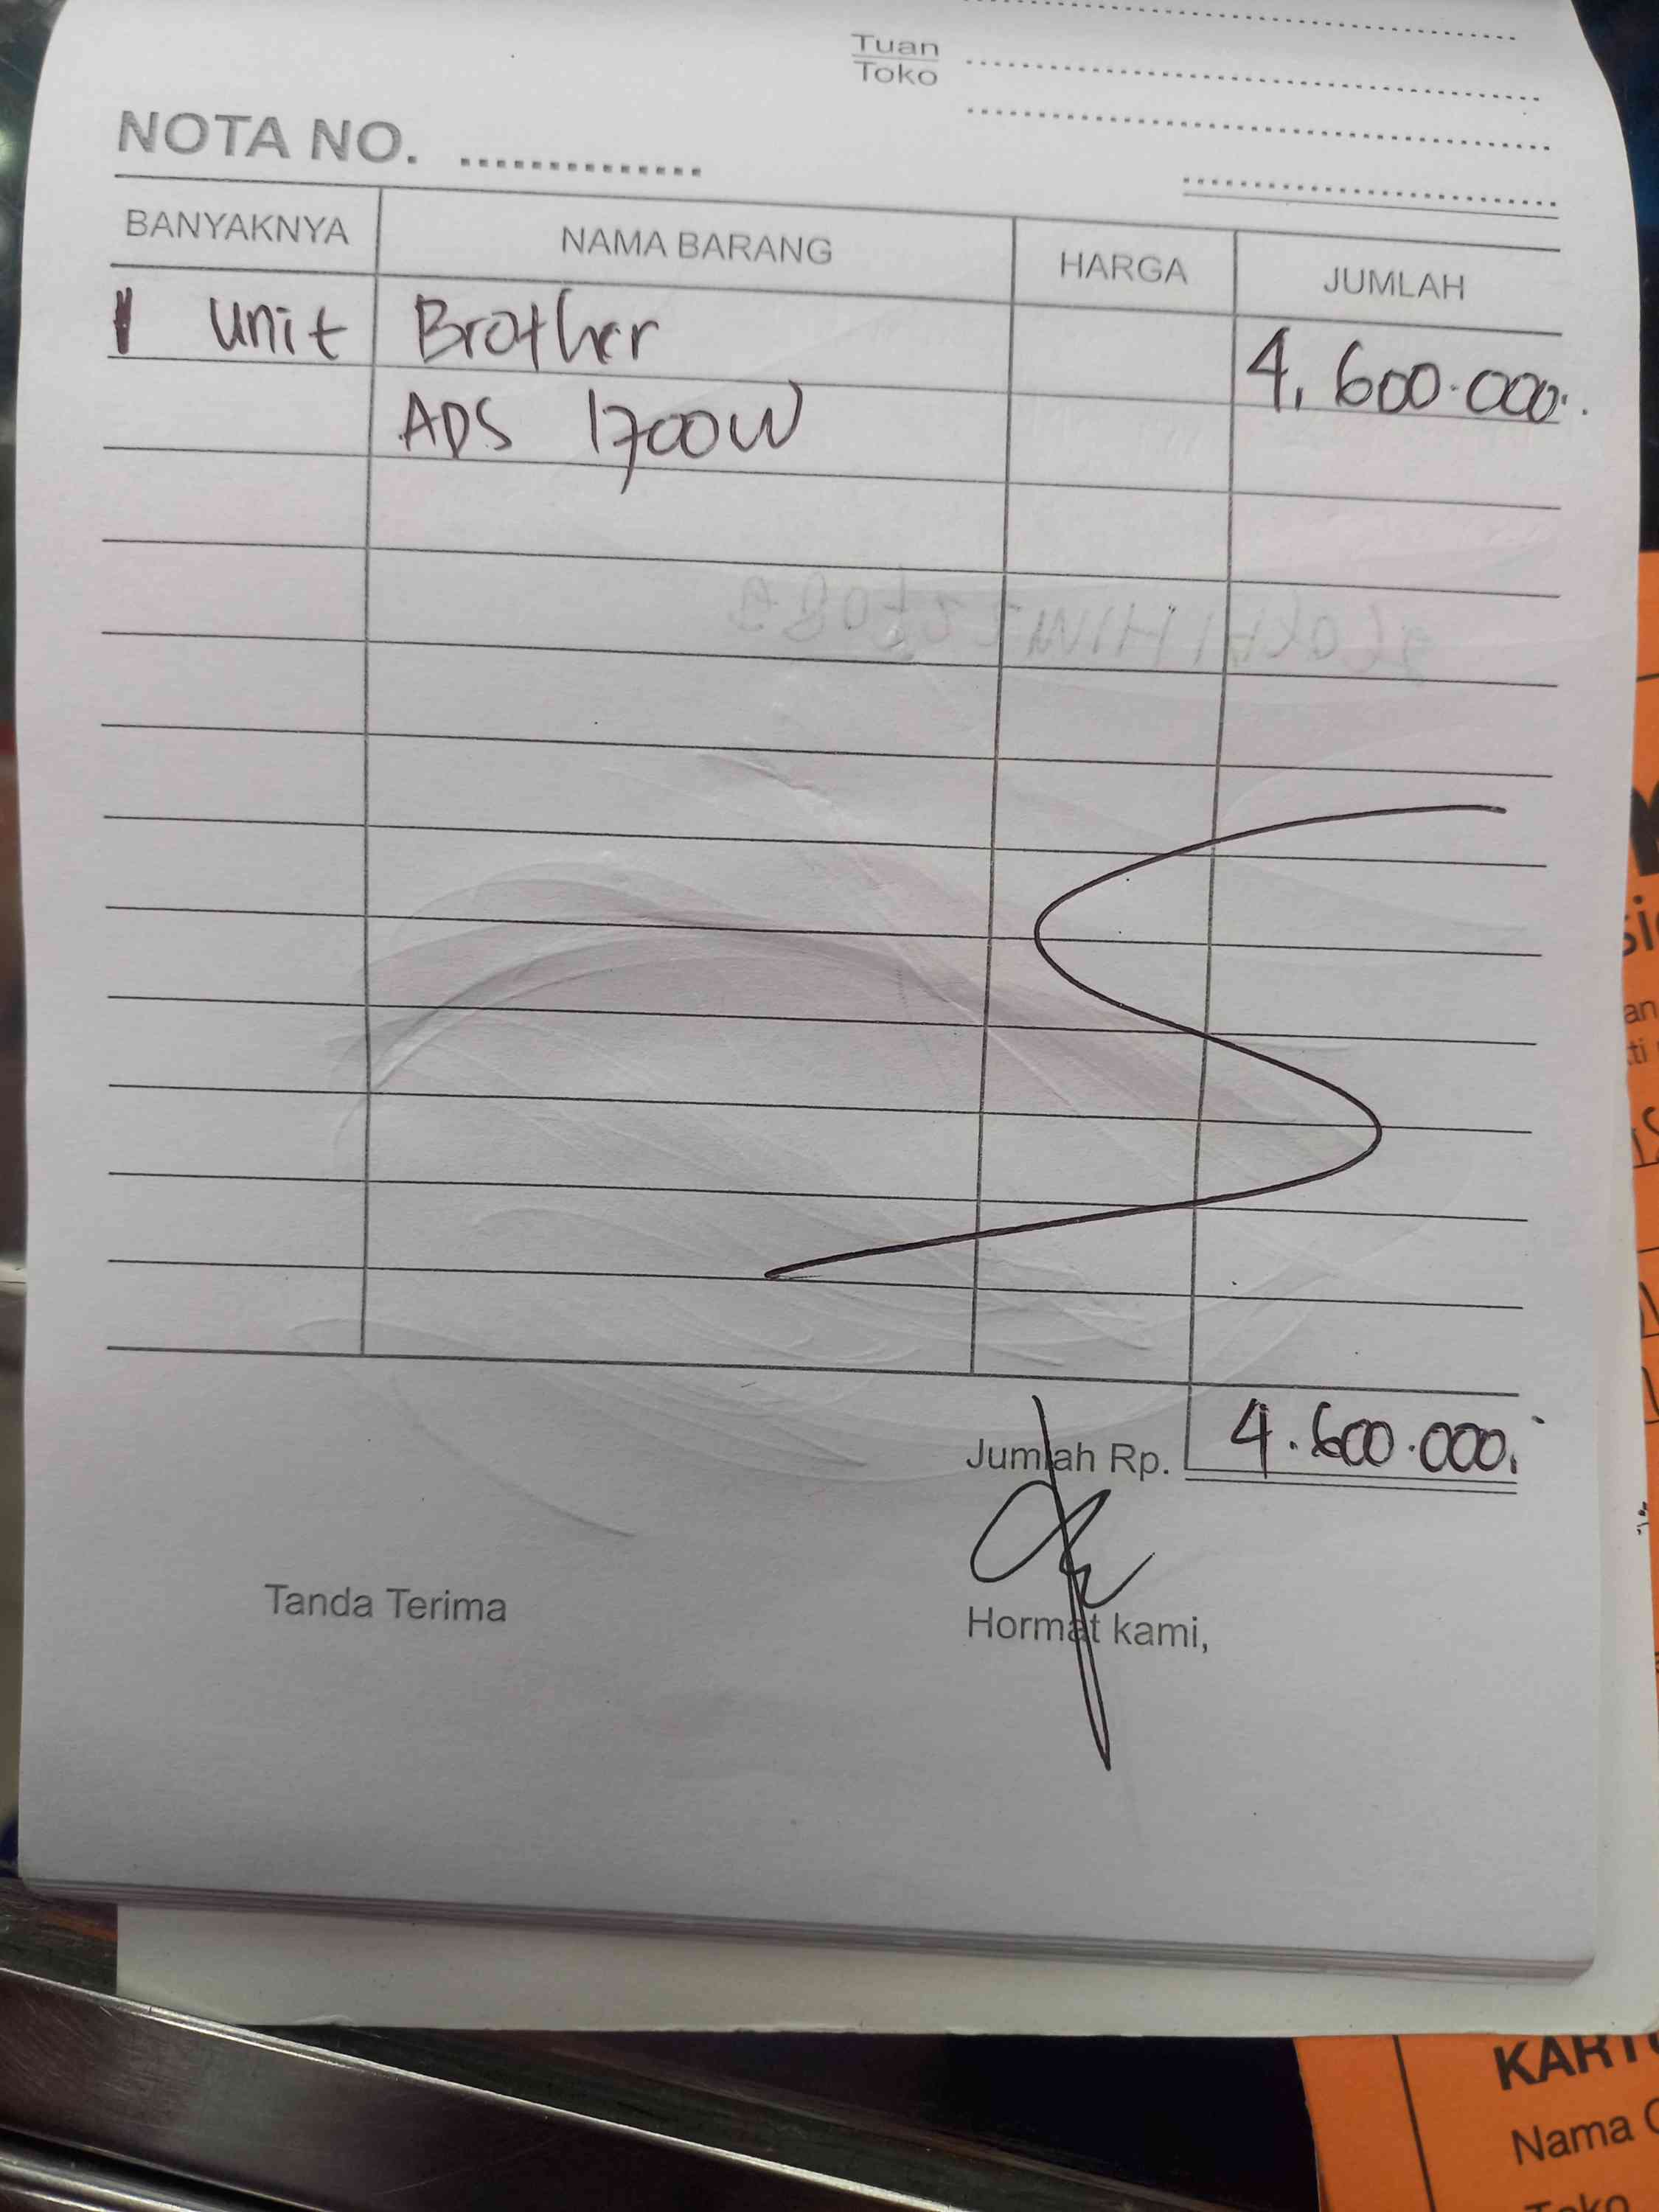 Tuan
Toko
NOTA NO. ..............
BANYAKNYA NAMA BARANG HARGA JUMLAH
1 unit Brother 4.600.000
ADS 1700W
Jumlah Rp. 4.600.000
Tanda Terima Hormat kami,
KARTU
Nama
Toko